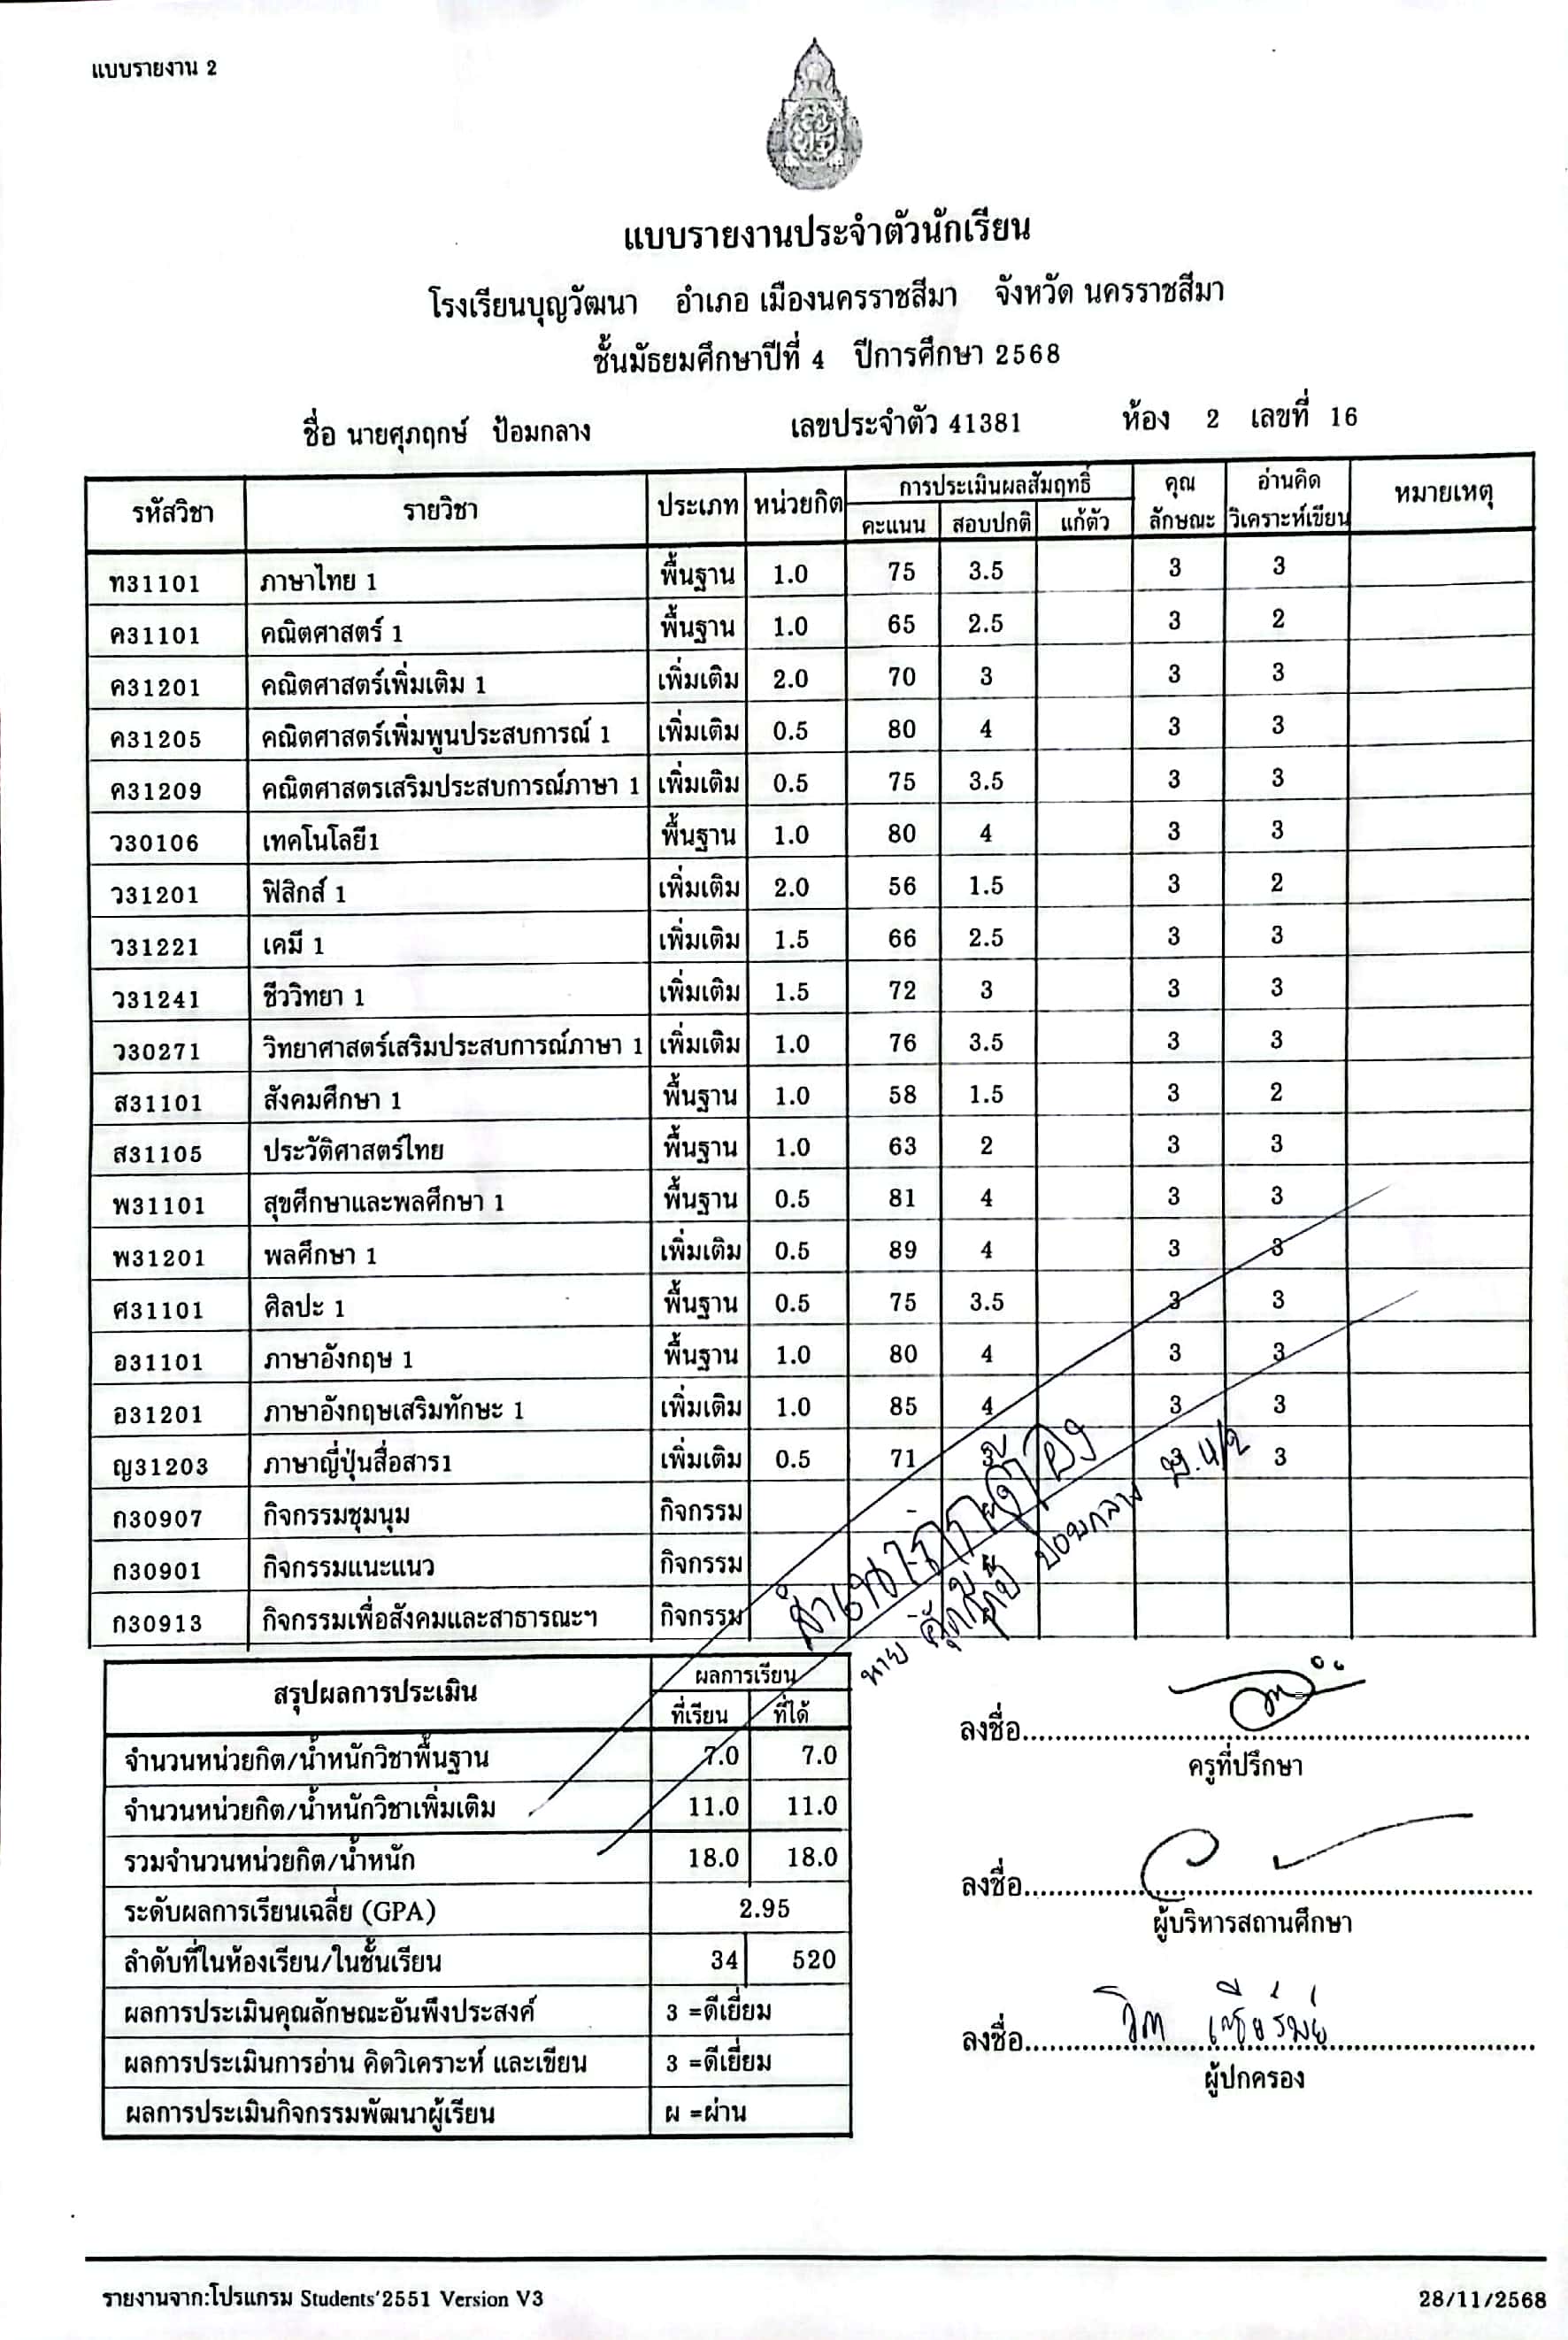 แบบรายงาน 2
แบบรายงานประจำตัวนักเรียน
โรงเรียนบุญวัฒนา อำเภอ เมืองนครราชสีมา จังหวัด นครราชสีมา
ชั้นมัธยมศึกษาปีที่ 4 ปีการศึกษา 2568
ชื่อ นายศุภฤกษ์ ป้อมกลาง เลขประจำตัว 41381 ห้อง 2 เลขที่ 16
รหัสวิชา รายวิชา ประเภท หน่วยกิต การประเมินผลสัมฤทธิ์ คุณ อ่านคิด หมายเหตุ
คะแนน สอบปกติ แก้ตัว ลักษณะ วิเคราะห์เขียน
ท31101 ภาษาไทย 1 พื้นฐาน 1.0 75 3.5 3 3
ค31101 คณิตศาสตร์ 1 พื้นฐาน 1.0 65 2.5 3 2
ค31201 คณิตศาสตร์เพิ่มเติม 1 เพิ่มเติม 2.0 70 3 3 3
ค31205 คณิตศาสตร์เพิ่มพูนประสบการณ์ 1 เพิ่มเติม 0.5 80 4 3 3
ค31209 คณิตศาสตรเสริมประสบการณ์ภาษา 1 เพิ่มเติม 0.5 75 3.5 3 3
ว30106 เทคโนโลยี1 พื้นฐาน 1.0 80 4 3 3
ว31201 ฟิสิกส์ 1 เพิ่มเติม 2.0 56 1.5 3 2
ว31221 เคมี 1 เพิ่มเติม 1.5 66 2.5 3 3
ว31241 ชีววิทยา 1 เพิ่มเติม 1.5 72 3 3 3
ว30271 วิทยาศาสตร์เสริมประสบการณ์ภาษา 1 เพิ่มเติม 1.0 76 3.5 3 3
ส31101 สังคมศึกษา 1 พื้นฐาน 1.0 58 1.5 3 2
ส31105 ประวัติศาสตร์ไทย พื้นฐาน 1.0 63 2 3 3
พ31101 สุขศึกษาและพลศึกษา 1 พื้นฐาน 0.5 81 4 3 3
พ31201 พลศึกษา 1 เพิ่มเติม 0.5 89 4 3 3
ศ31101 ศิลปะ 1 พื้นฐาน 0.5 75 3.5 3 3
อ31101 ภาษาอังกฤษ 1 พื้นฐาน 1.0 80 4 3 3
อ31201 ภาษาอังกฤษเสริมทักษะ 1 เพิ่มเติม 1.0 85 4 3 3
ญ31203 ภาษาญี่ปุ่นสื่อสาร1 เพิ่มเติม 0.5 71 3 3 3
ก30907 กิจกรรมชุมนุม กิจกรรม - ผ
ก30901 กิจกรรมแนะแนว กิจกรรม - ผ
ก30913 กิจกรรมเพื่อสังคมและสาธารณะฯ กิจกรรม - ผ
สำเนาถูกต้อง
นาย ศุภฤกษ์ ป้อมกลาง
สรุปผลการประเมิน ผลการเรียน
ที่เรียน ที่ได้
จำนวนหน่วยกิต/น้ำหนักวิชาพื้นฐาน 7.0 7.0
จำนวนหน่วยกิต/น้ำหนักวิชาเพิ่มเติม 11.0 11.0
รวมจำนวนหน่วยกิต/น้ำหนัก 18.0 18.0
ระดับผลการเรียนเฉลี่ย (GPA) 2.95
ลำดับที่ในห้องเรียน/ในชั้นเรียน 34 520
ผลการประเมินคุณลักษณะอันพึงประสงค์ 3 =ดีเยี่ยม
ผลการประเมินการอ่าน คิดวิเคราะห์ และเขียน 3 =ดีเยี่ยม
ผลการประเมินกิจกรรมพัฒนาผู้เรียน ผ =ผ่าน
ลงชื่อ
ครูที่ปรึกษา
ลงชื่อ
ผู้บริหารสถานศึกษา
ลงชื่อ
ผู้ปกครอง
รายงานจาก:โปรแกรม Students'2551 Version V3 28/11/2568